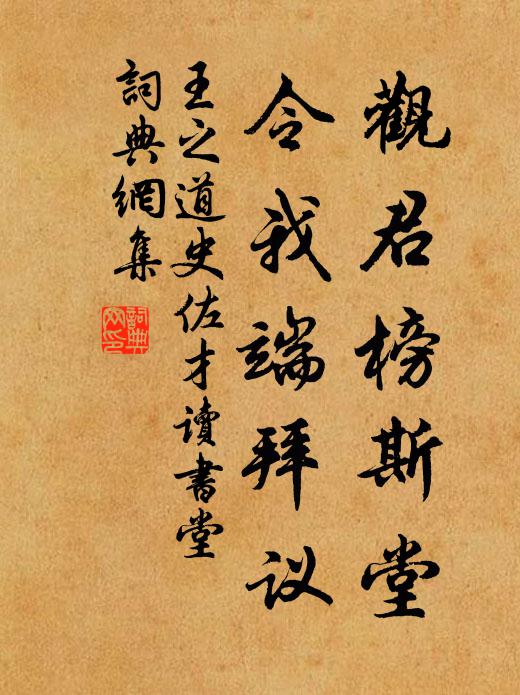 觀君榜斯堂
令我端拜议
王之道史佐才讀書堂
詞典網集
詞典網印